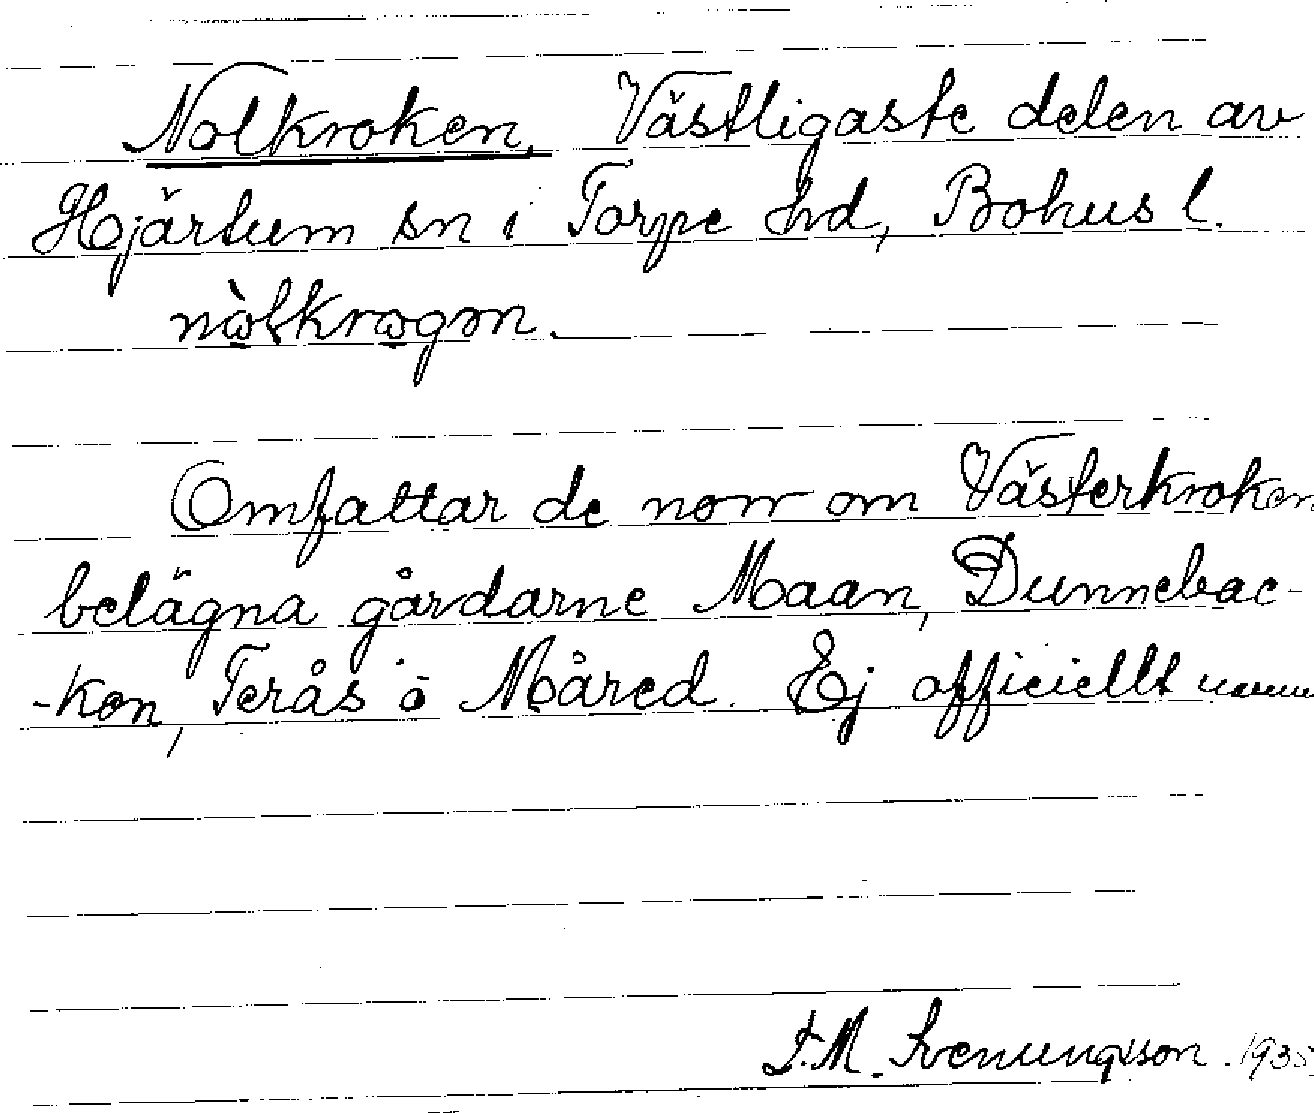 Nolkroken, Västligaste delen av
Hjärtum sn i Torpe hd, Bohus l.
nòlkrogən.
Omfattar de norr om Västerkroken
belägna gårdarne Maan, Dunnebac-
-ken, Terås o Måred. Ej officiellt namn
J.M. Svenungsson. 1935